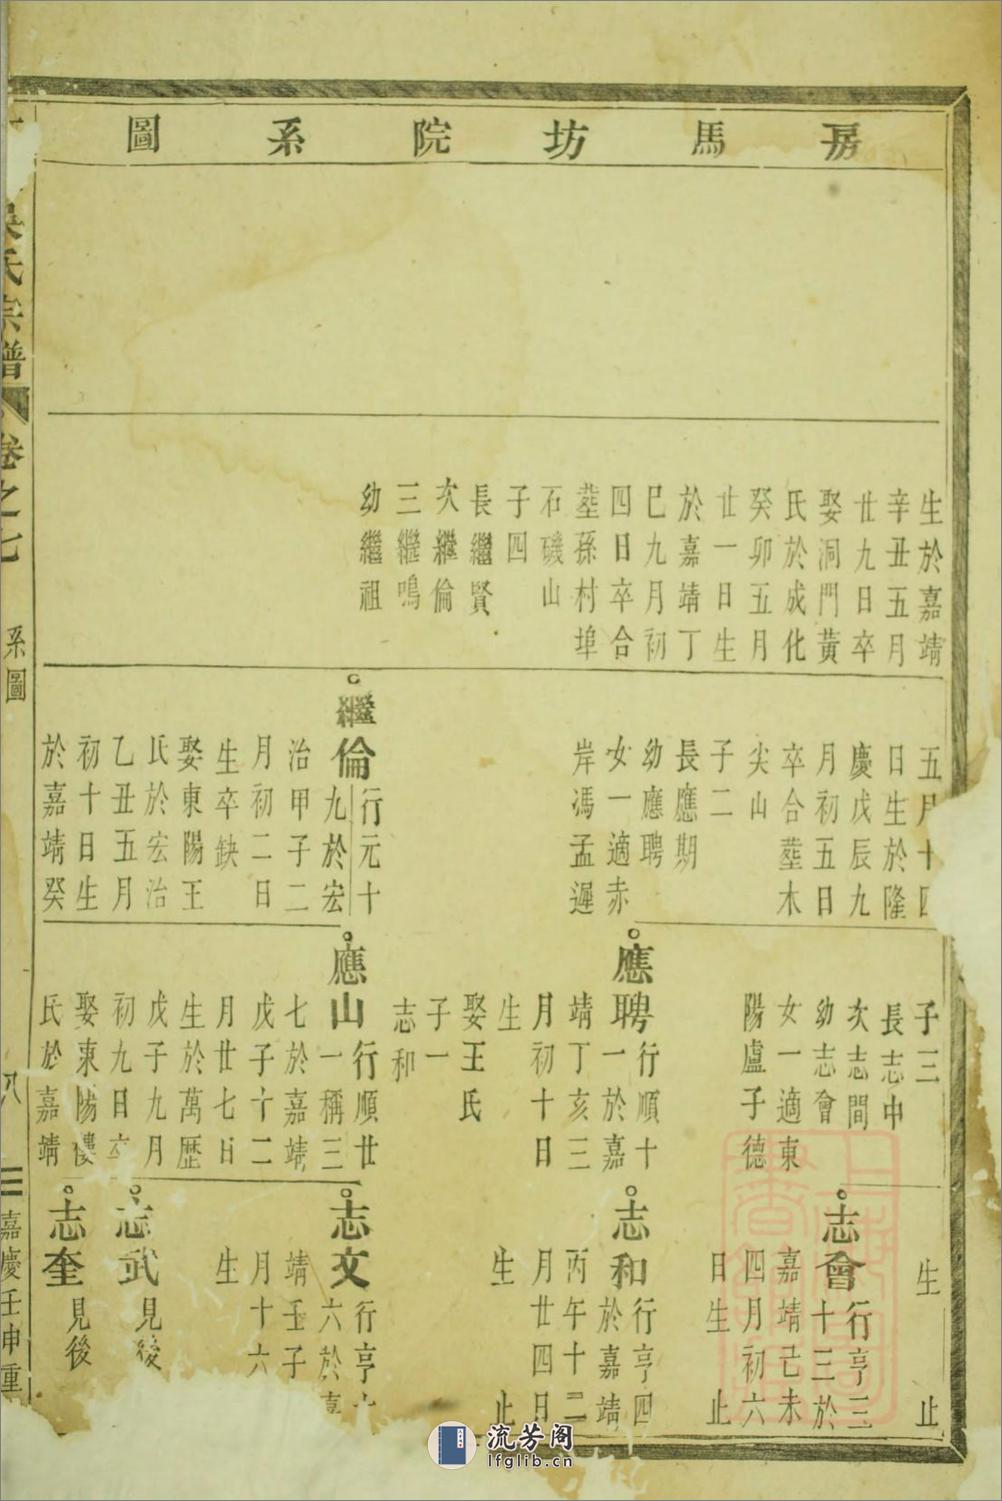 房馬坊院系圖
生於嘉靖
辛丑五月
廿九日卒
娶洞門黃
氏於成化
癸卯五月
廿一日生
於嘉靖丁
巳九月初
四日卒合
塟孫村埠
石磯山
子四
長繼賢
次繼倫
三繼鳴
幼繼祖
五月十四
日生於隆
慶戊辰九
月初五日
卒合塟木
尖山
子二
長應期
幼應聘
女一適赤
岸馮孟遲
繼倫
行元十
九於宏
治甲子二
月初二日
生卒缺
娶東陽王
氏於宏治
乙丑五月
初十日生
於嘉靖癸
子三
長志中
次志間
幼志會
女一適東
陽盧子德
應聘
行順十
一於嘉
靖丁亥三
月初十日
生
娶王氏
子一
志和
應山
行順廿
一稱三
七於嘉靖
戊子十二
月廿七日
生於萬歷
戊子九月
初九日卒
娶東陽樓
氏於嘉靖
生
止
志會
行亨三
十三於
嘉靖己未
四月初六
日生
止
志和
行亨四
於嘉靖
丙午十二
月廿四日
生
止
志文
行亨
六於
靖壬子
月十六
生
志武
見後
志奎
見後
吳氏宗譜
卷之七
系圖
八
嘉慶壬申重
流芳阁
lfglib.cn